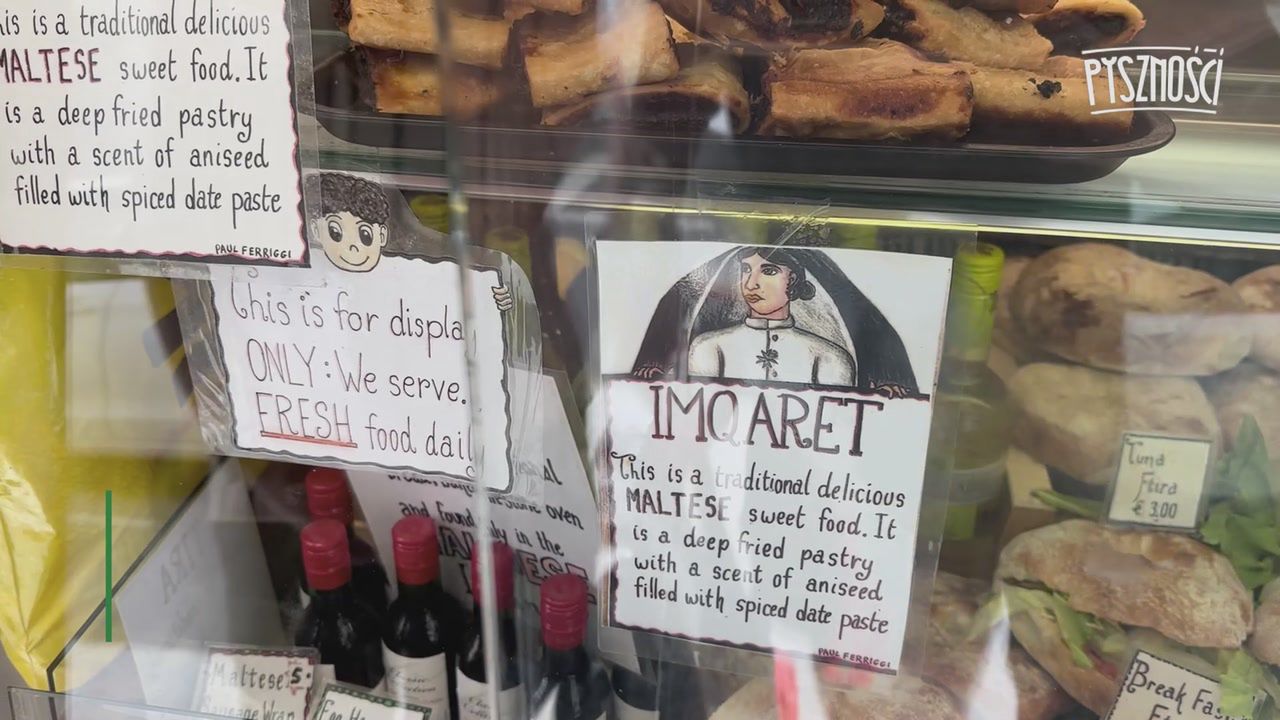 This is a traditional delicious
MALTESE sweet food. It
is a deep fried pastry
with a scent of aniseed
filled with spiced date paste
PAUL FERRIGGI
PYSZNOŚCI
This is for displa
ONLY: We serve.
FRESH food dail
oven
and found only in the
IMQARET
This is a traditional delicious
MALTESE sweet food. It
is a deep fried pastry
with a scent of aniseed
filled with spiced date paste
PAUL FERRIGGI
Tuna
Ftira
€ 3.00
Maltese 5.
Sausage Wrap
Break Fas